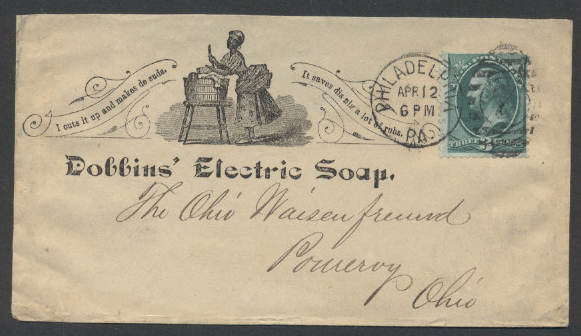 I cuts it up and makes de suds.
It saves dis nig a lot of rubs.
PHILADELP
APR 12
6 PM
PA.
THREE
3
Dobbins' Electric Soap.
The Ohio Waisenfreund
Pomeroy
Ohio